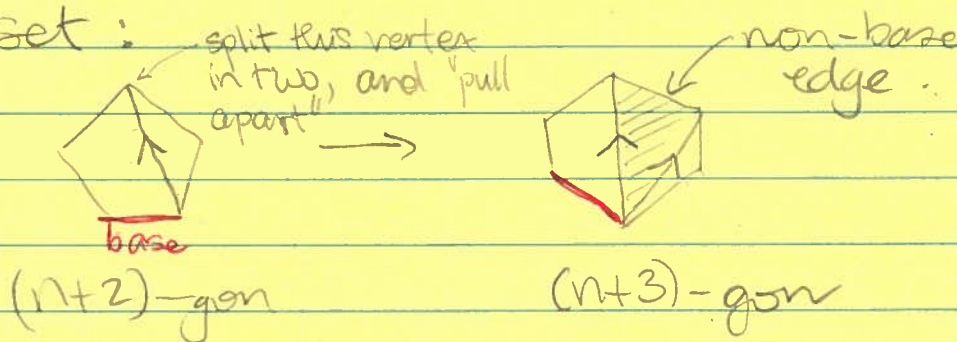 set :
split this vertex
in two, and "pull
apart"
non-base
edge.
base
(n+2)-gon
(n+3)-gon